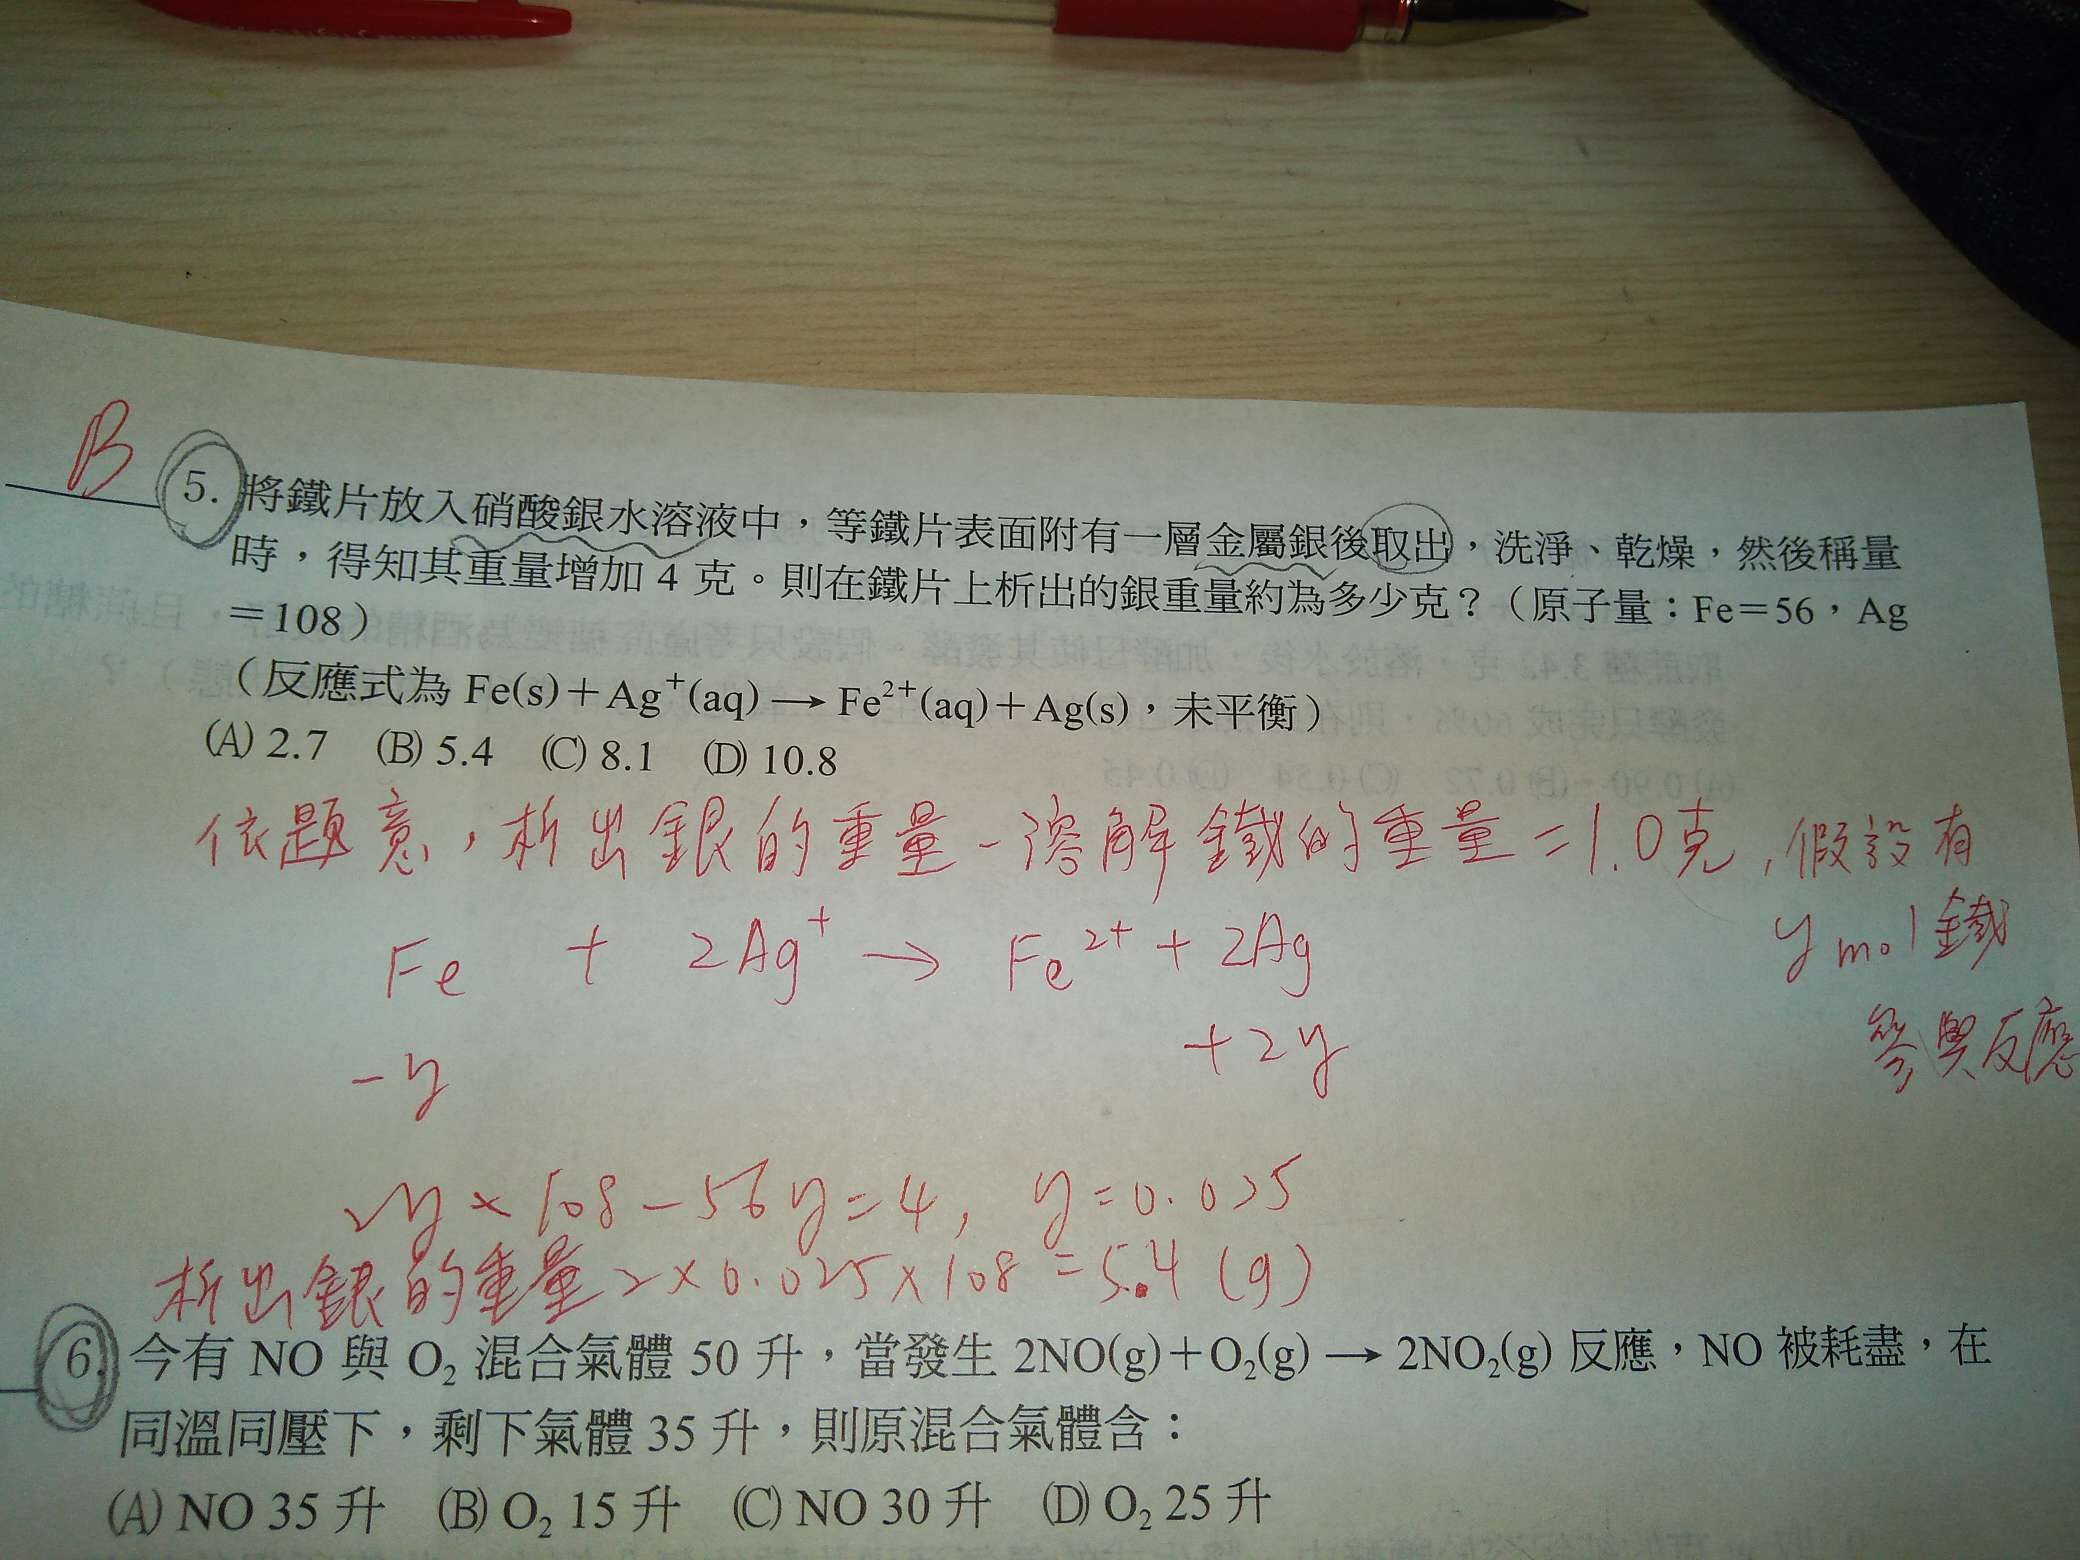 B
5. 將鐵片放入硝酸銀水溶液中，等鐵片表面附有一層金屬銀後取出，洗淨、乾燥，然後稱量
時，得知其重量增加 4 克。則在鐵片上析出的銀重量約為多少克？（原子量：Fe＝56，Ag
＝108）
（反應式為 Fe(s)＋Ag⁺(aq) ⟶ Fe²⁺(aq)＋Ag(s)，未平衡）
(A) 2.7 (B) 5.4 (C) 8.1 (D) 10.8
依題意，析出銀的重量-溶解鐵的重量=1.0克，假設有
y mol鐵
參與反應
Fe + 2Ag⁺ → Fe²⁺ + 2Ag
-y +2y
2y×108-56y=4, y=0.025
析出銀的重量 2×0.025×108=5.4 (g)
6. 今有 NO 與 O₂ 混合氣體 50 升，當發生 2NO(g)＋O₂(g) ⟶ 2NO₂(g) 反應，NO 被耗盡，在
同溫同壓下，剩下氣體 35 升，則原混合氣體含：
(A) NO 35 升 (B) O₂ 15 升 (C) NO 30 升 (D) O₂ 25 升